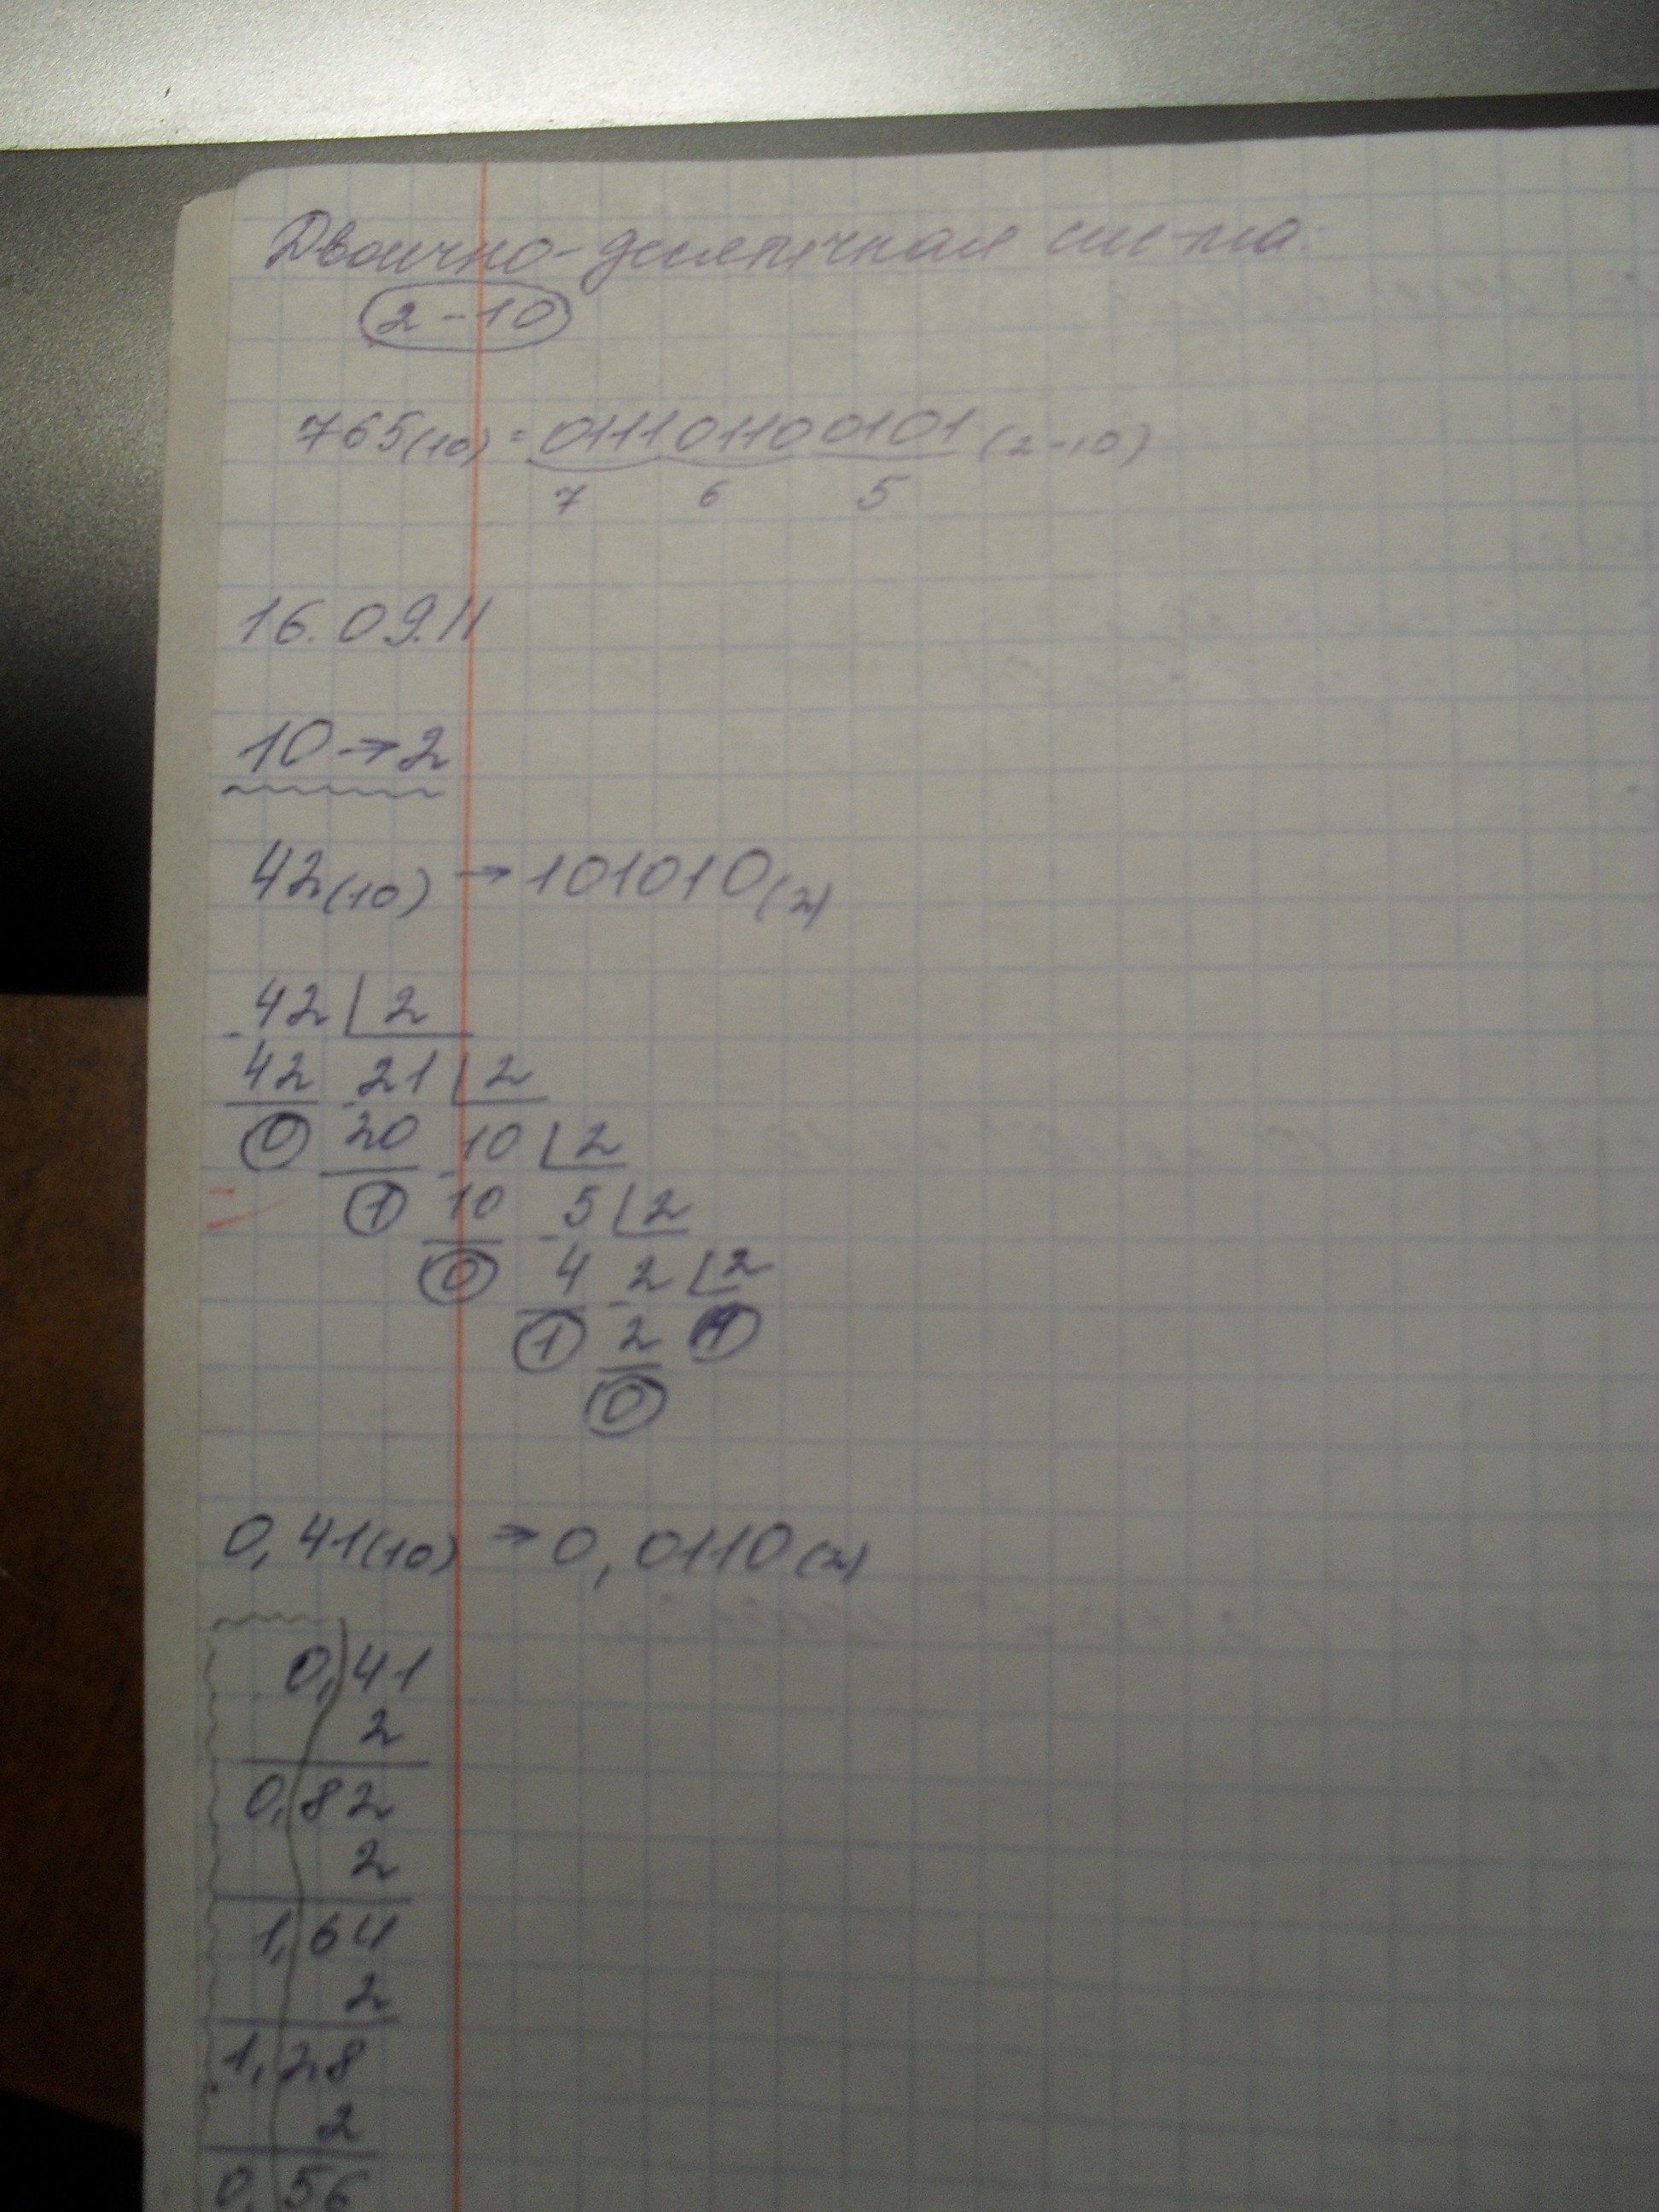 Двоично-десятичная сис-ма.
2-10
765(10) = 011101100101 (2-10)
7 6 5
16.09.11
10→2
42(10) → 101010(2)
42 2
42 21 2
0 20 10 2
1 10 5 2
0 4 2 2
1 2 1
0
0,41(10) → 0,0110(2)
0,41
2
0,82
2
1,64
2
1,28
2
0,56